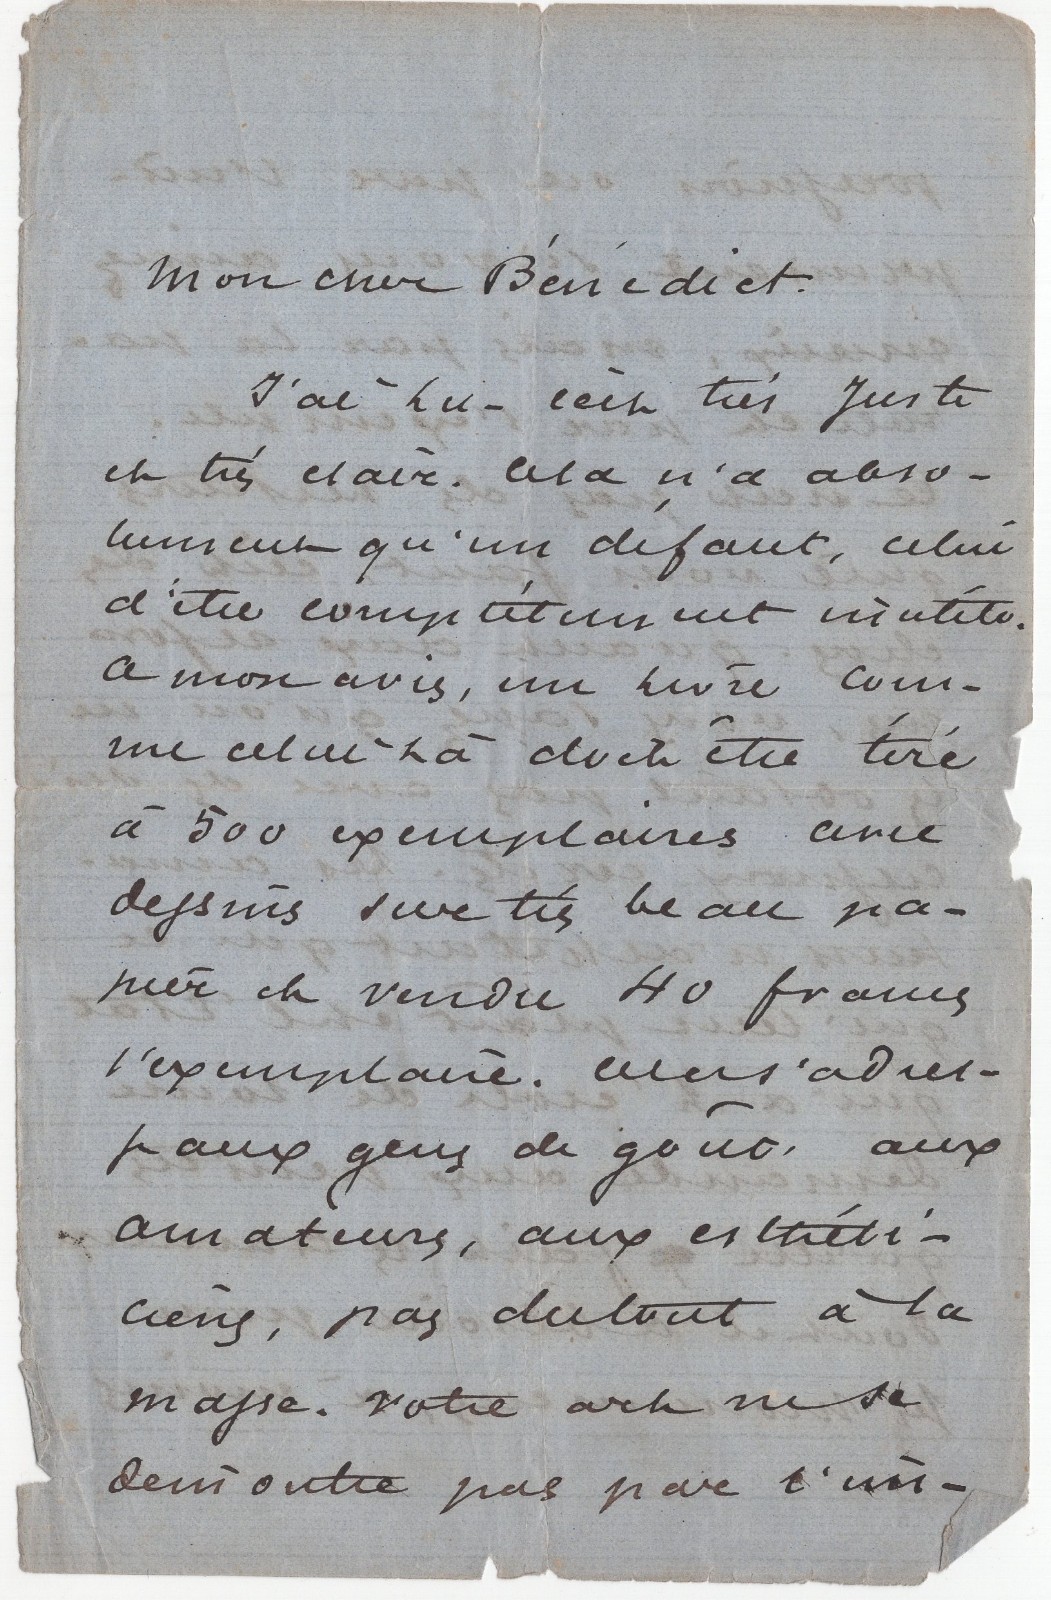 Mon cher Bénédict.
J'ai lu – c'est très juste
et très clair. Cela n'a abso-
lument qu'un défaut, celui
d'être complètement inutile.
A mon avis, un livre com-
me celui là doit être tiré
à 500 exemplaires avec
dessins sur très beau pa-
pier et vendu 40 francs
l'exemplaire. Cela s'adres-
se aux gens de goût, aux
amateurs, aux esthéti-
ciens, pas du tout à la
masse. Votre art ne se
démontre pas par l'im-